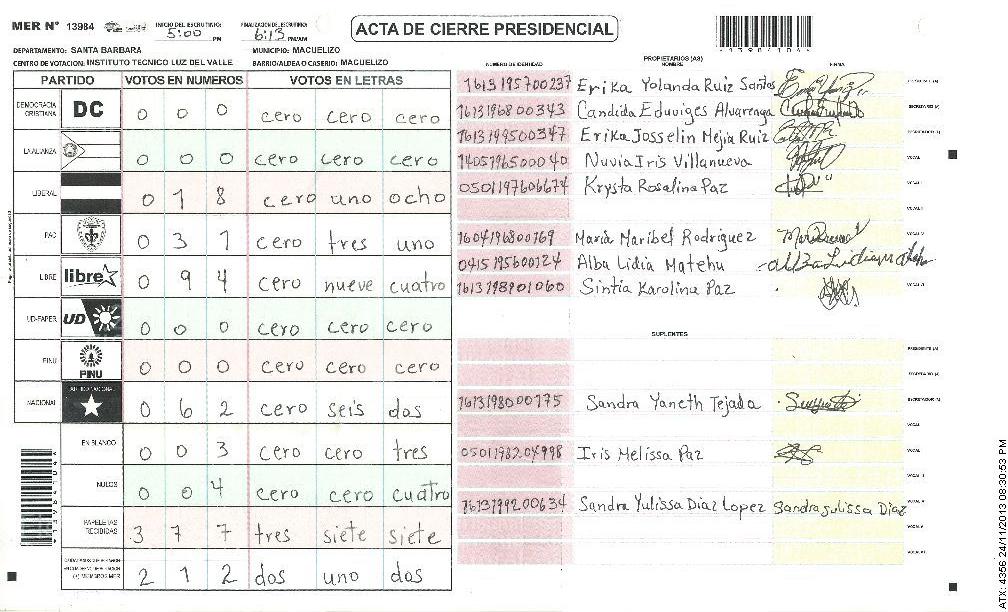 MER N° 13984 INICIO DEL ESCRUTINIO: 5:00 PM FINALIZACION DEL ESCRUTINIO: 6:13 PM/AM
ACTA DE CIERRE PRESIDENCIAL
DEPARTAMENTO: SANTA BARBARA MUNICIPIO: MACUELIZO
CENTRO DE VOTACION: INSTITUTO TECNICO LUZ DEL VALLE BARRIO/ALDEA O CASERIO: MACUELIZO
PARTIDO VOTOS EN NUMEROS VOTOS EN LETRAS
DEMOCRACIA CRISTIANA DC 0 0 0 cero cero cero
LA ALIANZA 0 0 0 cero cero cero
LIBERAL 0 1 8 cero uno ocho
PAC 0 3 1 cero tres uno
LIBRE libre 0 9 4 cero nueve cuatro
UD-FAPER UD 0 0 0 cero cero cero
PINU PINU 0 0 0 cero cero cero
NACIONAL PARTIDO NACIONAL 0 6 2 cero seis dos
EN BLANCO 0 0 3 cero cero tres
NULOS 0 0 4 cero cero cuatro
PAPELETAS RECIBIDAS 3 7 7 tres siete siete
2 1 2 dos uno dos
PROPIETARIOS (AS)
NUMERO DE IDENTIDAD NOMBRE FIRMA
1613195700237 Erika Yolanda Ruiz Santos
1613196800343 Candida Eduviges Alvarenga
1613199500347 Erika Josselin Mejia Ruiz
1405196500040 Nuvia Iris Villanueva VOCAL
0501197606674 Krysta Rosalina Paz
1604196800769 Maria Maribel Rodriguez
0415195600124 Alba Lidia Matehu
1613198901060 Sintia Karolina Paz
SUPLENTES
1613198000175 Sandra Yaneth Tejada
VOCAL
0501198204998 Iris Melissa Paz VOCAL
1613199200634 Sandra Yulissa Diaz Lopez Sandra yulissa Diaz
ATX: 4356 24/11/2013 08:30:53 PM